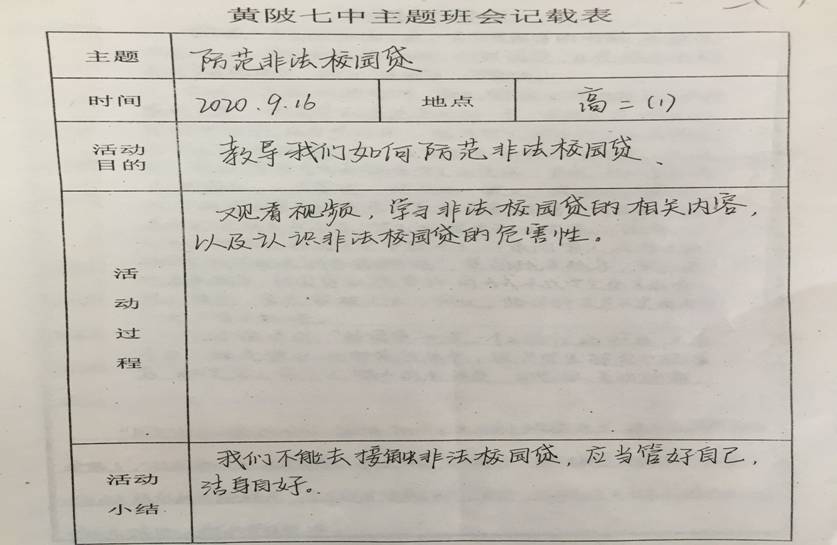 黄陂七中主题班会记载表
主题 防范非法校园贷
时间 2020.9.16 地点 高二(1)
活动目的 教导我们如何防范非法校园贷、
活动过程
观看视频，学习非法校园贷的相关内容，
以及认识非法校园贷的危害性。
活动小结
我们不能去接触非法校园贷，应当管好自己，
洁身自好。